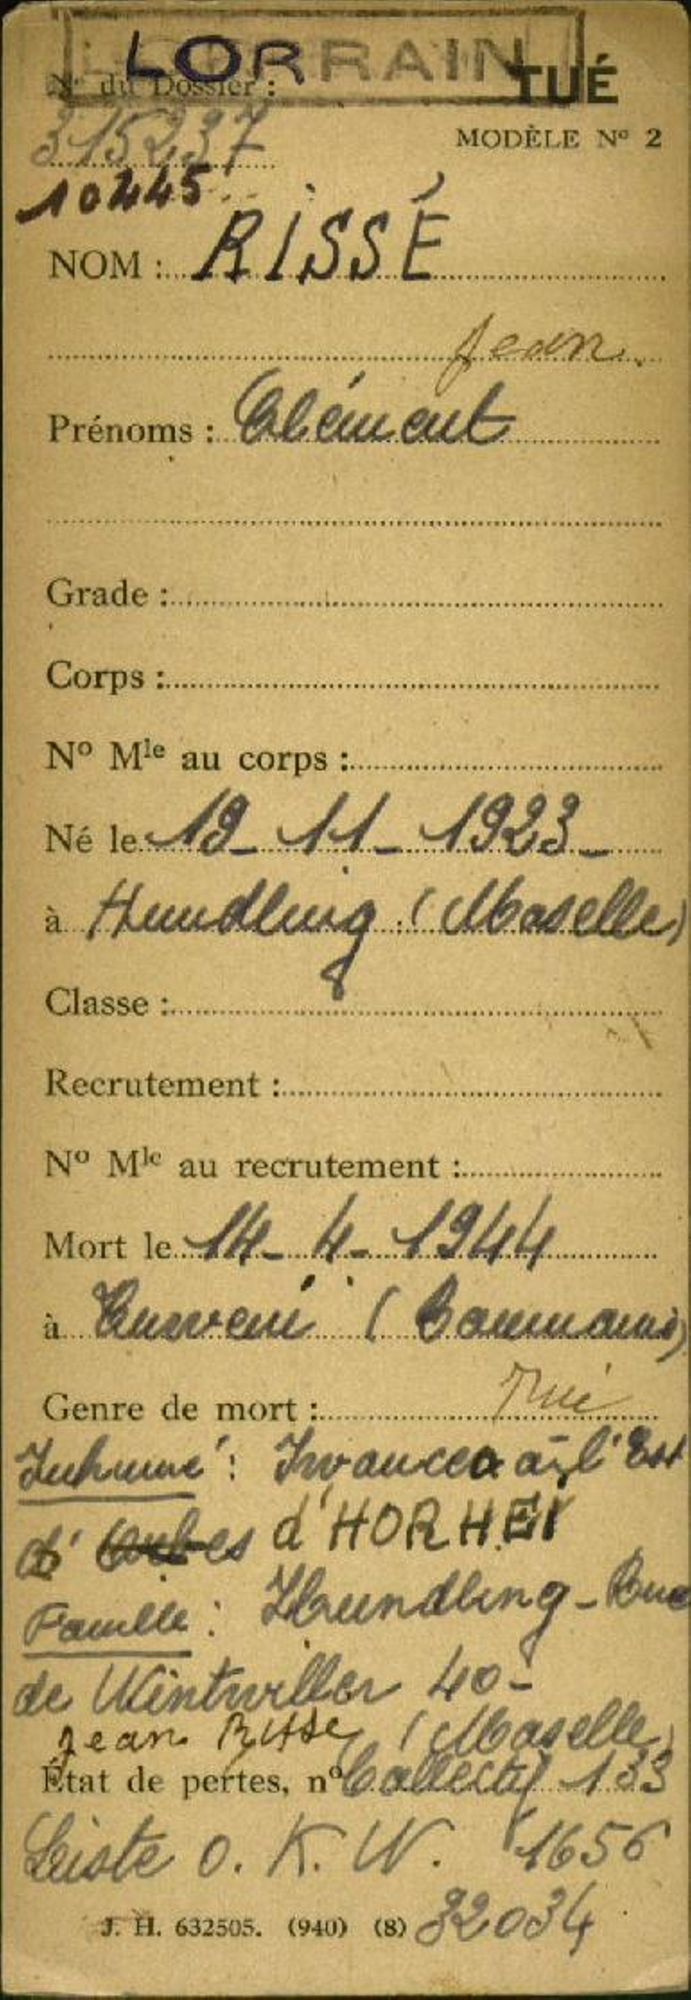 LORRAIN
N° du Dossier :
TUÉ
315237
MODÈLE N° 2
10445
NOM : RISSÉ
Jean
Prénoms : Clément
Grade :
Corps :
N° Mle au corps :
Né le 19-11-1923-
à Hundling (Moselle)
Classe :
Recrutement :
N° Mle au recrutement :
Mort le 14-4-1944
à (
Genre de mort : Tué
Inhumé : à l'Est
d' d'HORHEI
Famille : Hundling - Rue
de Wintwiller 40-
Jean Risse (Moselle)
État de pertes, n° Collectif 133
Leiste O.K.W. 1656
J. H. 632505. (940) (8) 32034